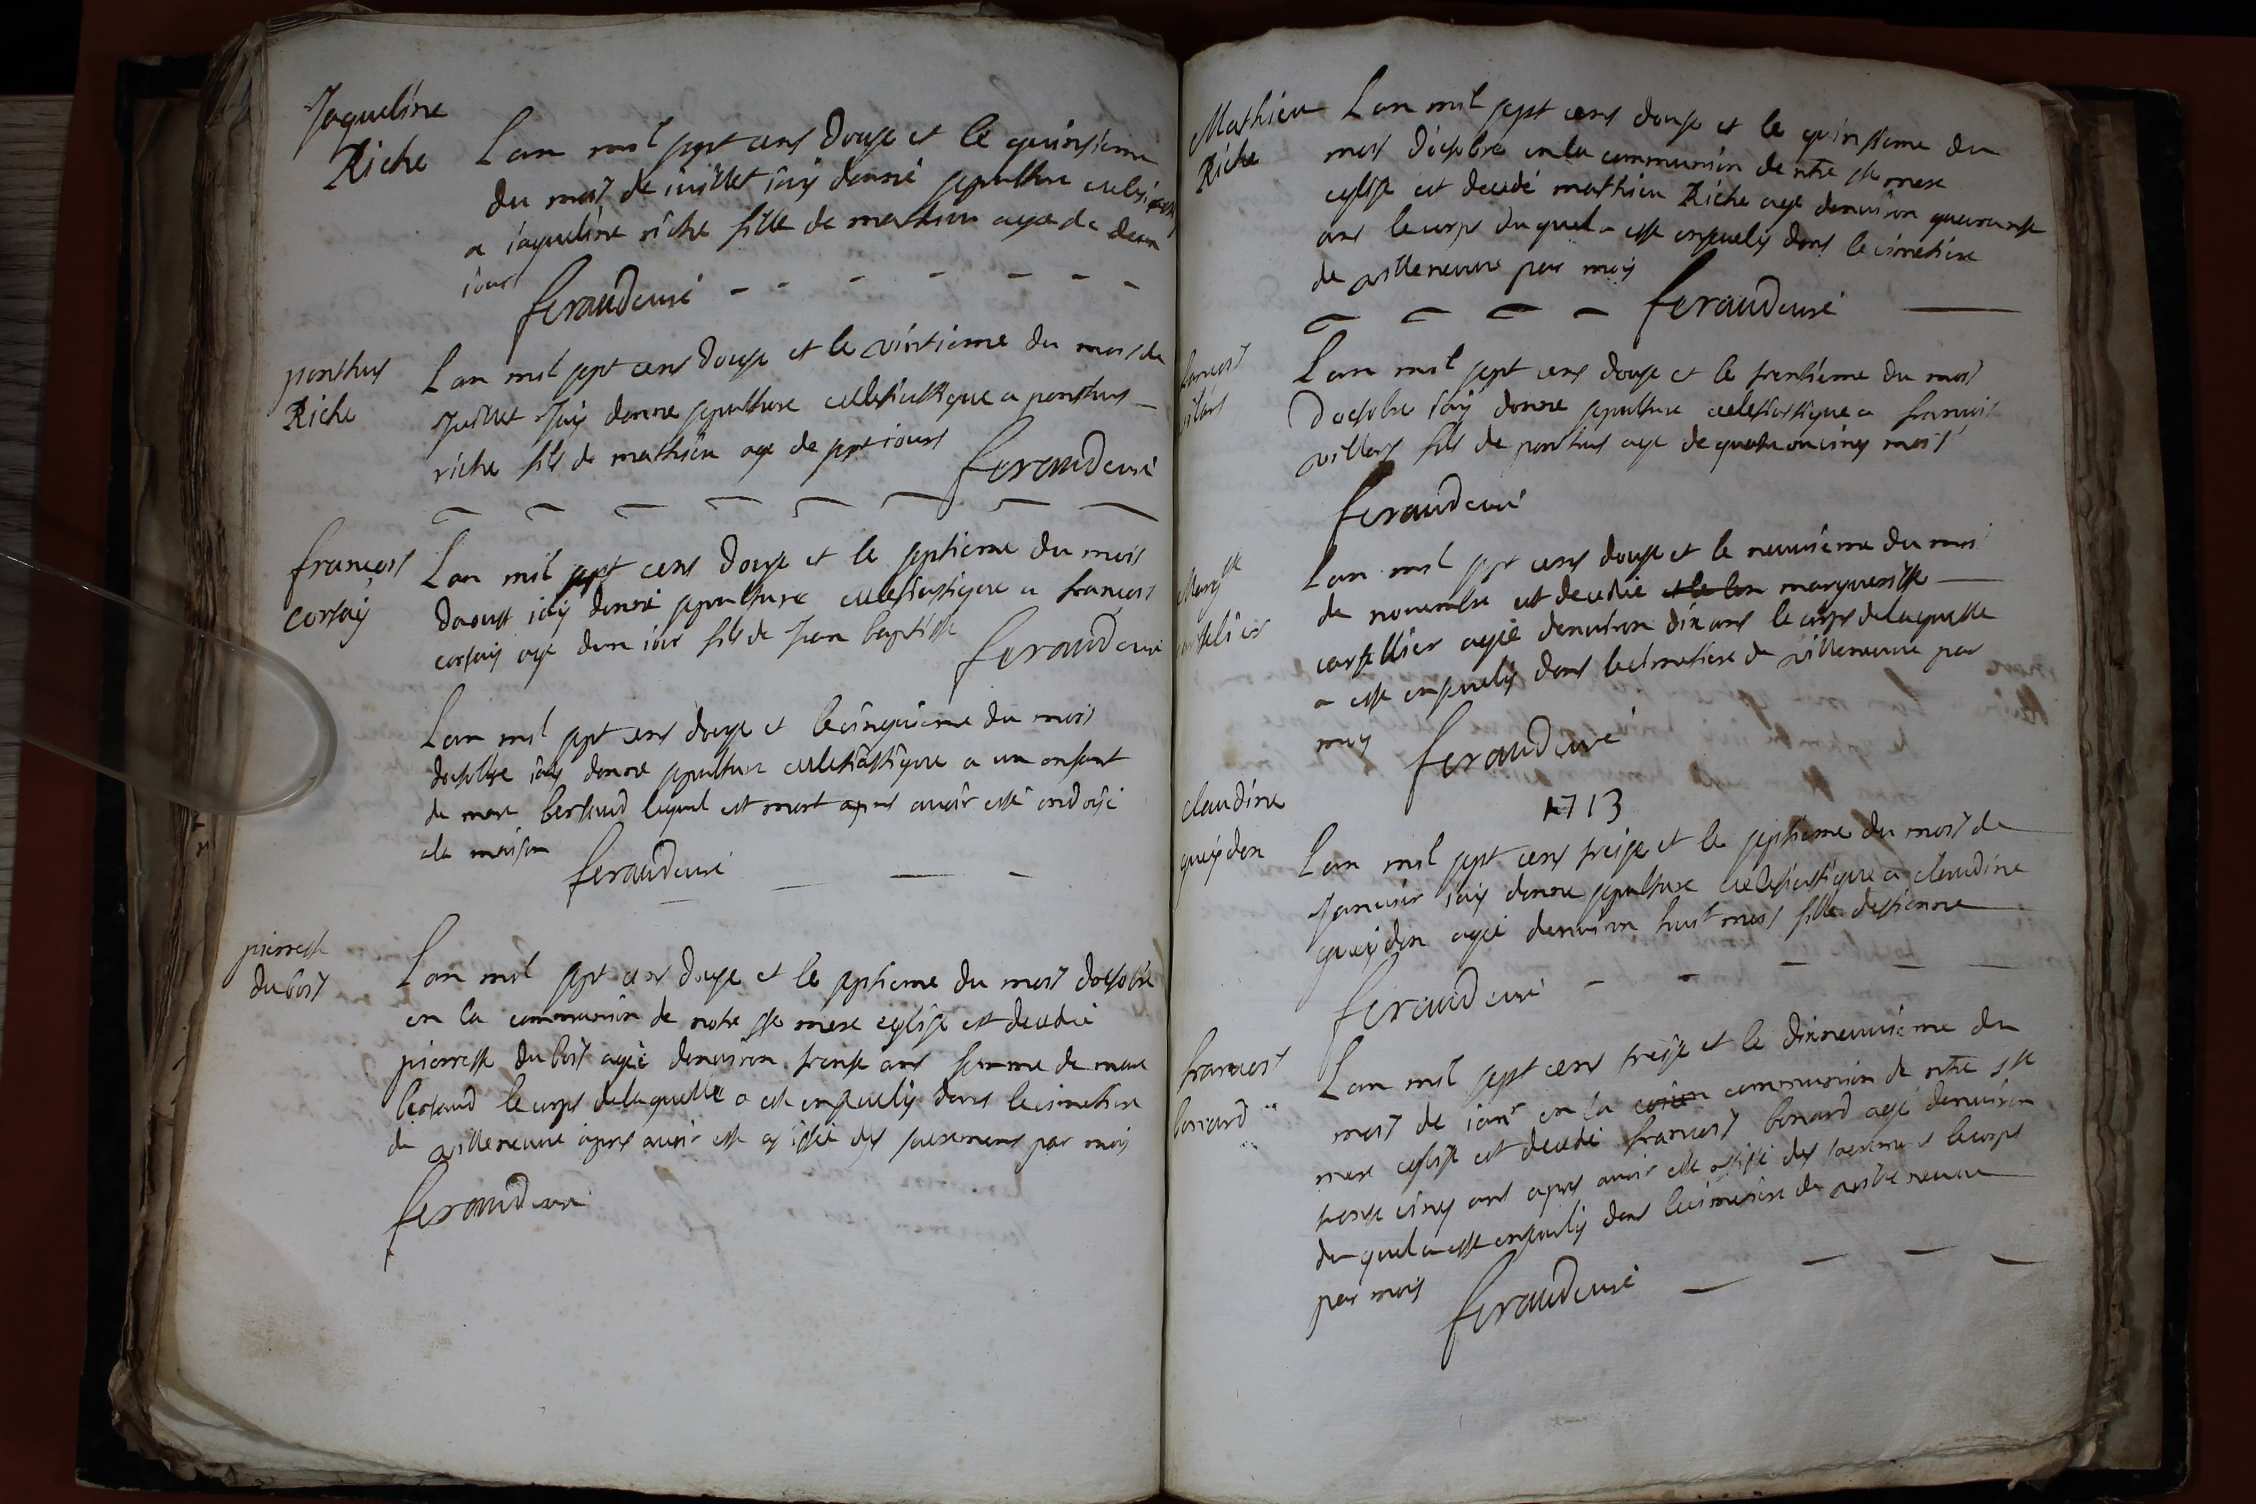 Jaqueline
Riche
Lan mil sept cens douze et le quinsieme
du mois de juillet iaÿ donné sepulture
a iaqueline riche fille de mathieu agee de deux
iours
feraud curé
ponthus
Riche
Lan mil sept cens douze et le vintieme du mois de
Juillet Jaÿ donne sepulture ecclesiastique a ponthus
riche fils de mathieu age de sept iours feraud curé
francois
corsaÿ
Lan mil sept cens douze et le septieme du mois
daoust iaÿ donné sepulture ecclesiastique a francois
corsaÿ age dun iour fils de Jean baptiste feraud curé
Lan mil sept cens douze et le cinquieme du mois
doctobre iaÿ donne sepulture ecclesiastique a un enfant
de marc bertaud lequel est mort apres avoir esté ondoÿé
ala maison
feraud curé
pierrette
du bois
Lan mil sept cens douze et le septieme du mois doctobre
en la communion de notre ste mere eglise est decedée
pierrette du bois agée denviron trente ans femme de marc
bertaud le corps delaquelle a esté enseuelÿ dans le cimetiere
de villeneuve apres avoir esté assistée des sacremens par moÿ
feraud curé
Mathieu
Riche
Lan mil sept cens douze et le quinsieme du
mois doctobre en la communion de ntre ste mere
eglise est decedé mathieu Riche age denviron quarante
ans le corps duquel a esté enseuelÿ dans le cimetiere
de villeneuve par moÿ
feraud curé
francois
vilars
Lan mil sept cens douze et le trentieme du mois
Doctobre iaÿ donne sepulture ecclesiastique a francois
villars fils de ponthus age de quatre ou cinq mois
feraud curé
Margte
cortelier
Lan mil sept cens douze et le neuvieme du mois
de novembre est decedée marguerite
cortellier agée denviron dix ans le corps delaquelle
a esté enseuelÿ dans le cimetiere de villeneuve par
moÿ
feraud curé
1713
claudine
gueÿdon
Lan mil sept cens treize et le septieme du mois de
Janvier iaÿ donne sepulture ecclesiastique a claudine
gueÿdon agée denviron huit mois fille destienne
feraud curé
francois
bonard
Lan mil sept cens treize et le dixneuvieme du
mois de ianr en la communion de ntre ste
mere eglise est decedé francois bonard agé denviron
trente cinq ans apres avoir esté assisté des sacremens le corps
duquel a esté enseuelÿ dans le cimetiere de villeneuve
par moÿ feraud curé